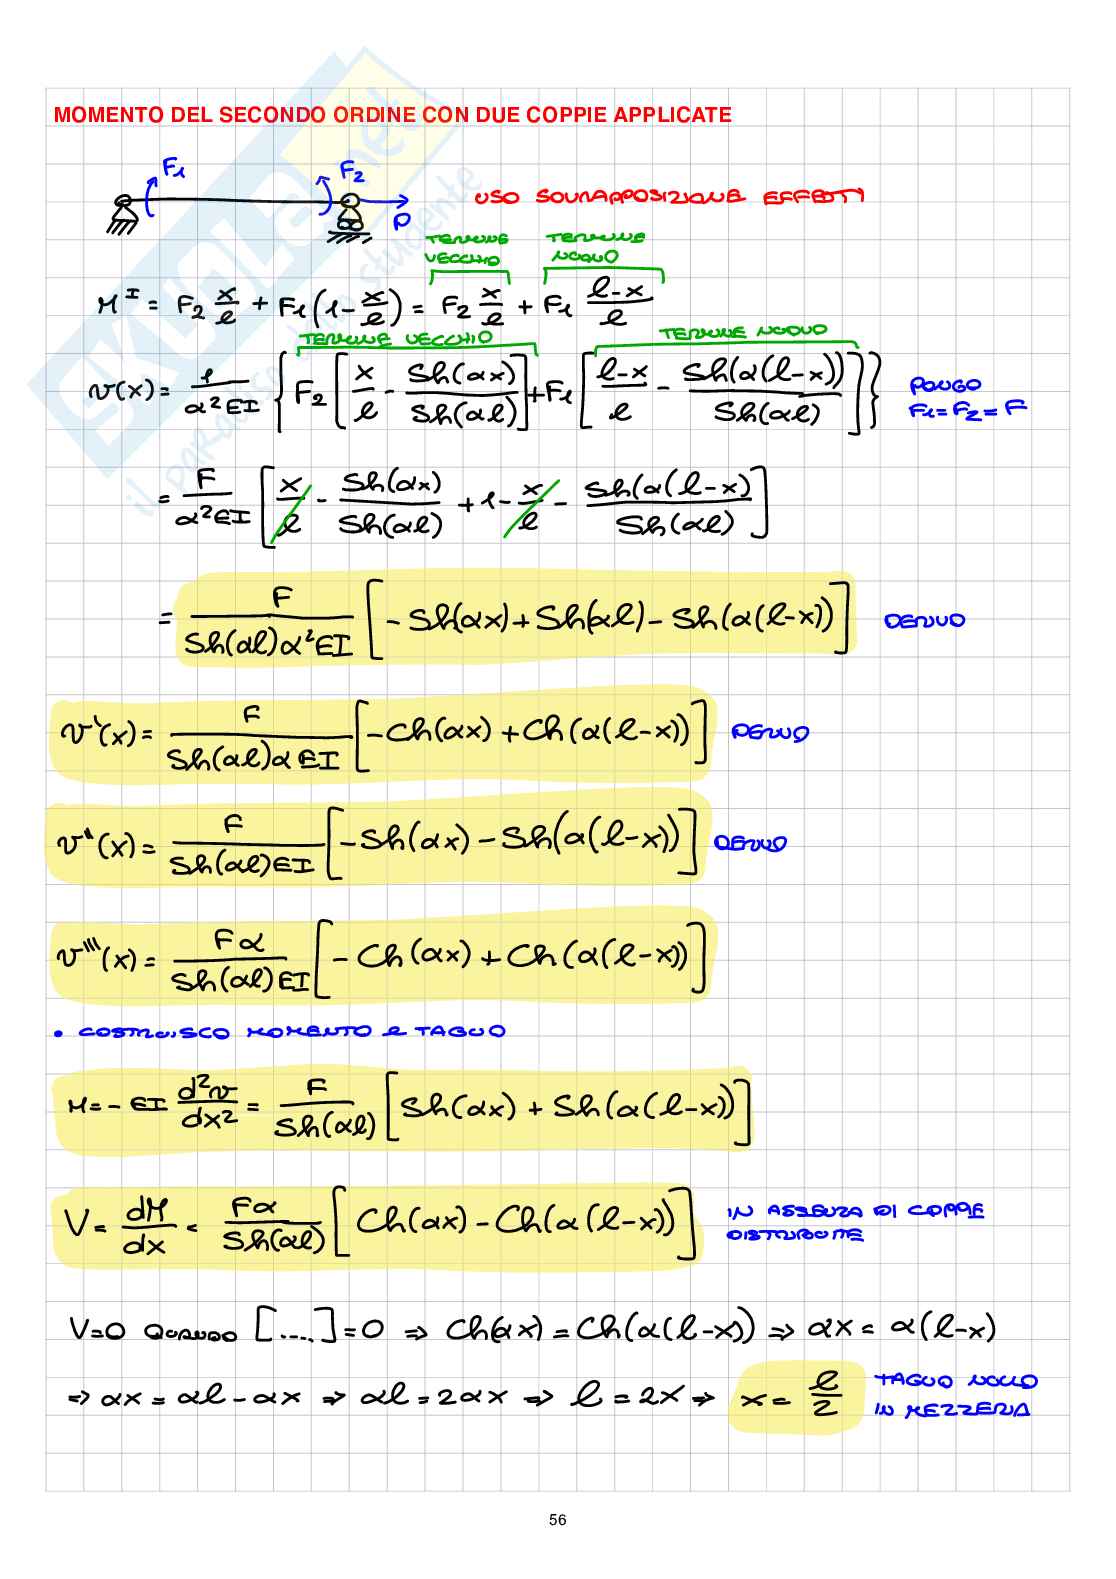 MOMENTO DEL SECONDO ORDINE CON DUE COPPIE APPLICATE
F₁ F₂ P
USO SOVRAPPOSIZIONE EFFETTI
TERMINE VECCHIO TERMINE NUOVO
Mᴵ = F₂ x/l + F₁(1-x/l) = F₂ x/l + F₁ (l-x)/l
TERMINE VECCHIO TERMINE NUOVO
v(x) = 1/(α²EI) {F₂ [x/l - Sh(αx)/Sh(αl)] + F₁ [(l-x)/l - Sh(α(l-x))/Sh(αl)]} PONGO F₁=F₂=F
= F/(α²EI) [x/l - Sh(αx)/Sh(αl) + 1 - x/l - Sh(α(l-x)/Sh(αl)]
= F/(Sh(αl)α²EI) [-Sh(αx) + Sh(αl) - Sh(α(l-x))] DERIVO
v'(x) = F/(Sh(αl)αEI) [-Ch(αx) + Ch(α(l-x))] DERIVO
v''(x) = F/(Sh(αl)EI) [-Sh(αx) - Sh(α(l-x))] DERIVO
v'''(x) = Fα/(Sh(αl)EI) [-Ch(αx) + Ch(α(l-x))]
• COSTRUISCO MOMENTO E TAGLIO
M = -EI d²v/dx² = F/Sh(αl) [Sh(αx) + Sh(α(l-x))]
V = dM/dx = Fα/Sh(αl) [Ch(αx) - Ch(α(l-x))] IN ASSENZA DI COPPIE DISTRIBUITE
V=0 QUANDO [....] = 0 ⇒ Ch(αx) = Ch(α(l-x)) ⇒ αx = α(l-x)
⇒ αx = αl - αx ⇒ αl = 2αx ⇒ l = 2x ⇒ x = l/2 TAGLIO NULLO IN MEZZERIA
56
SKUOLA.net
il paradiso dello studente